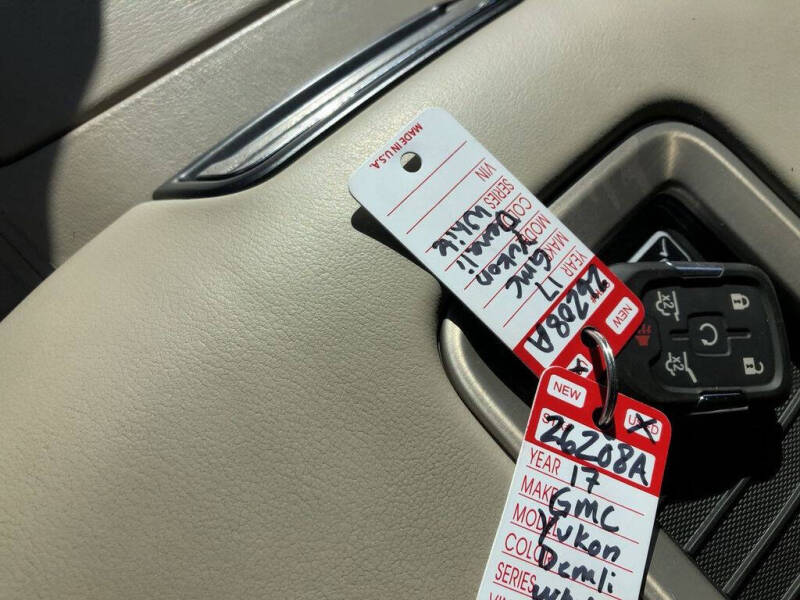 MADE IN U.S.A.
NEW
26208A
YEAR 17
MAKE GMC
MOD Yukon
COL Denali
SERIES White
VIN
NEW USED
26208A
YEAR 17
MAKE GMC
MODEL Yukon
COLOR Denali
SERIES
VIN
X2
X2